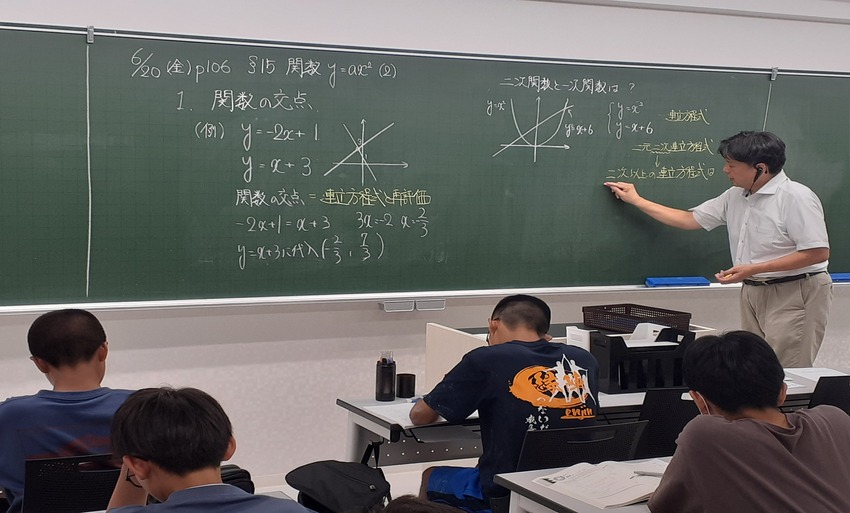 6/20 (金) p106 §15 関数 y=ax² (2)
1. 関数の交点
(例) y=-2x+1
y=x+3
関数の交点=連立方程式と再評価
-2x+1=x+3 3x=-2 x=2/3
y=x+3に代入(-2/3, 7/3)
二次関数と一次関数は?
y=x²
y=x+6
y=x² 連立方程式
y=x+6
二元二次連立方程式
二次以上の連立方程式は